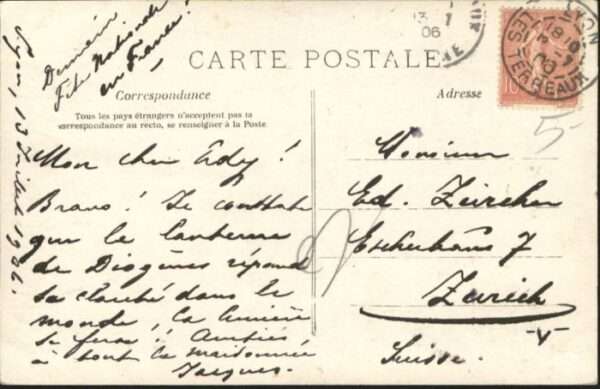 Demain
Fête Nationale
en France!
Lyon, 13 Juillet 1906.
CARTE POSTALE
Correspondance
Tous les pays étrangers n'acceptent pas la
correspondance au recto, se renseigner à la Poste
Adresse
Mon cher Edy!
Bravo! Je constate
que la lanterne
de Diogènes répand
sa clarté dans le
monde, la lumière
se fera! Amitiés
à tout la maisonnée
Jacques.
Monsieur
Ed. Zürcher
7
Zurich
Suisse.
13 7
06
LYON
LES TERREAUX
18 10
06
10
5-